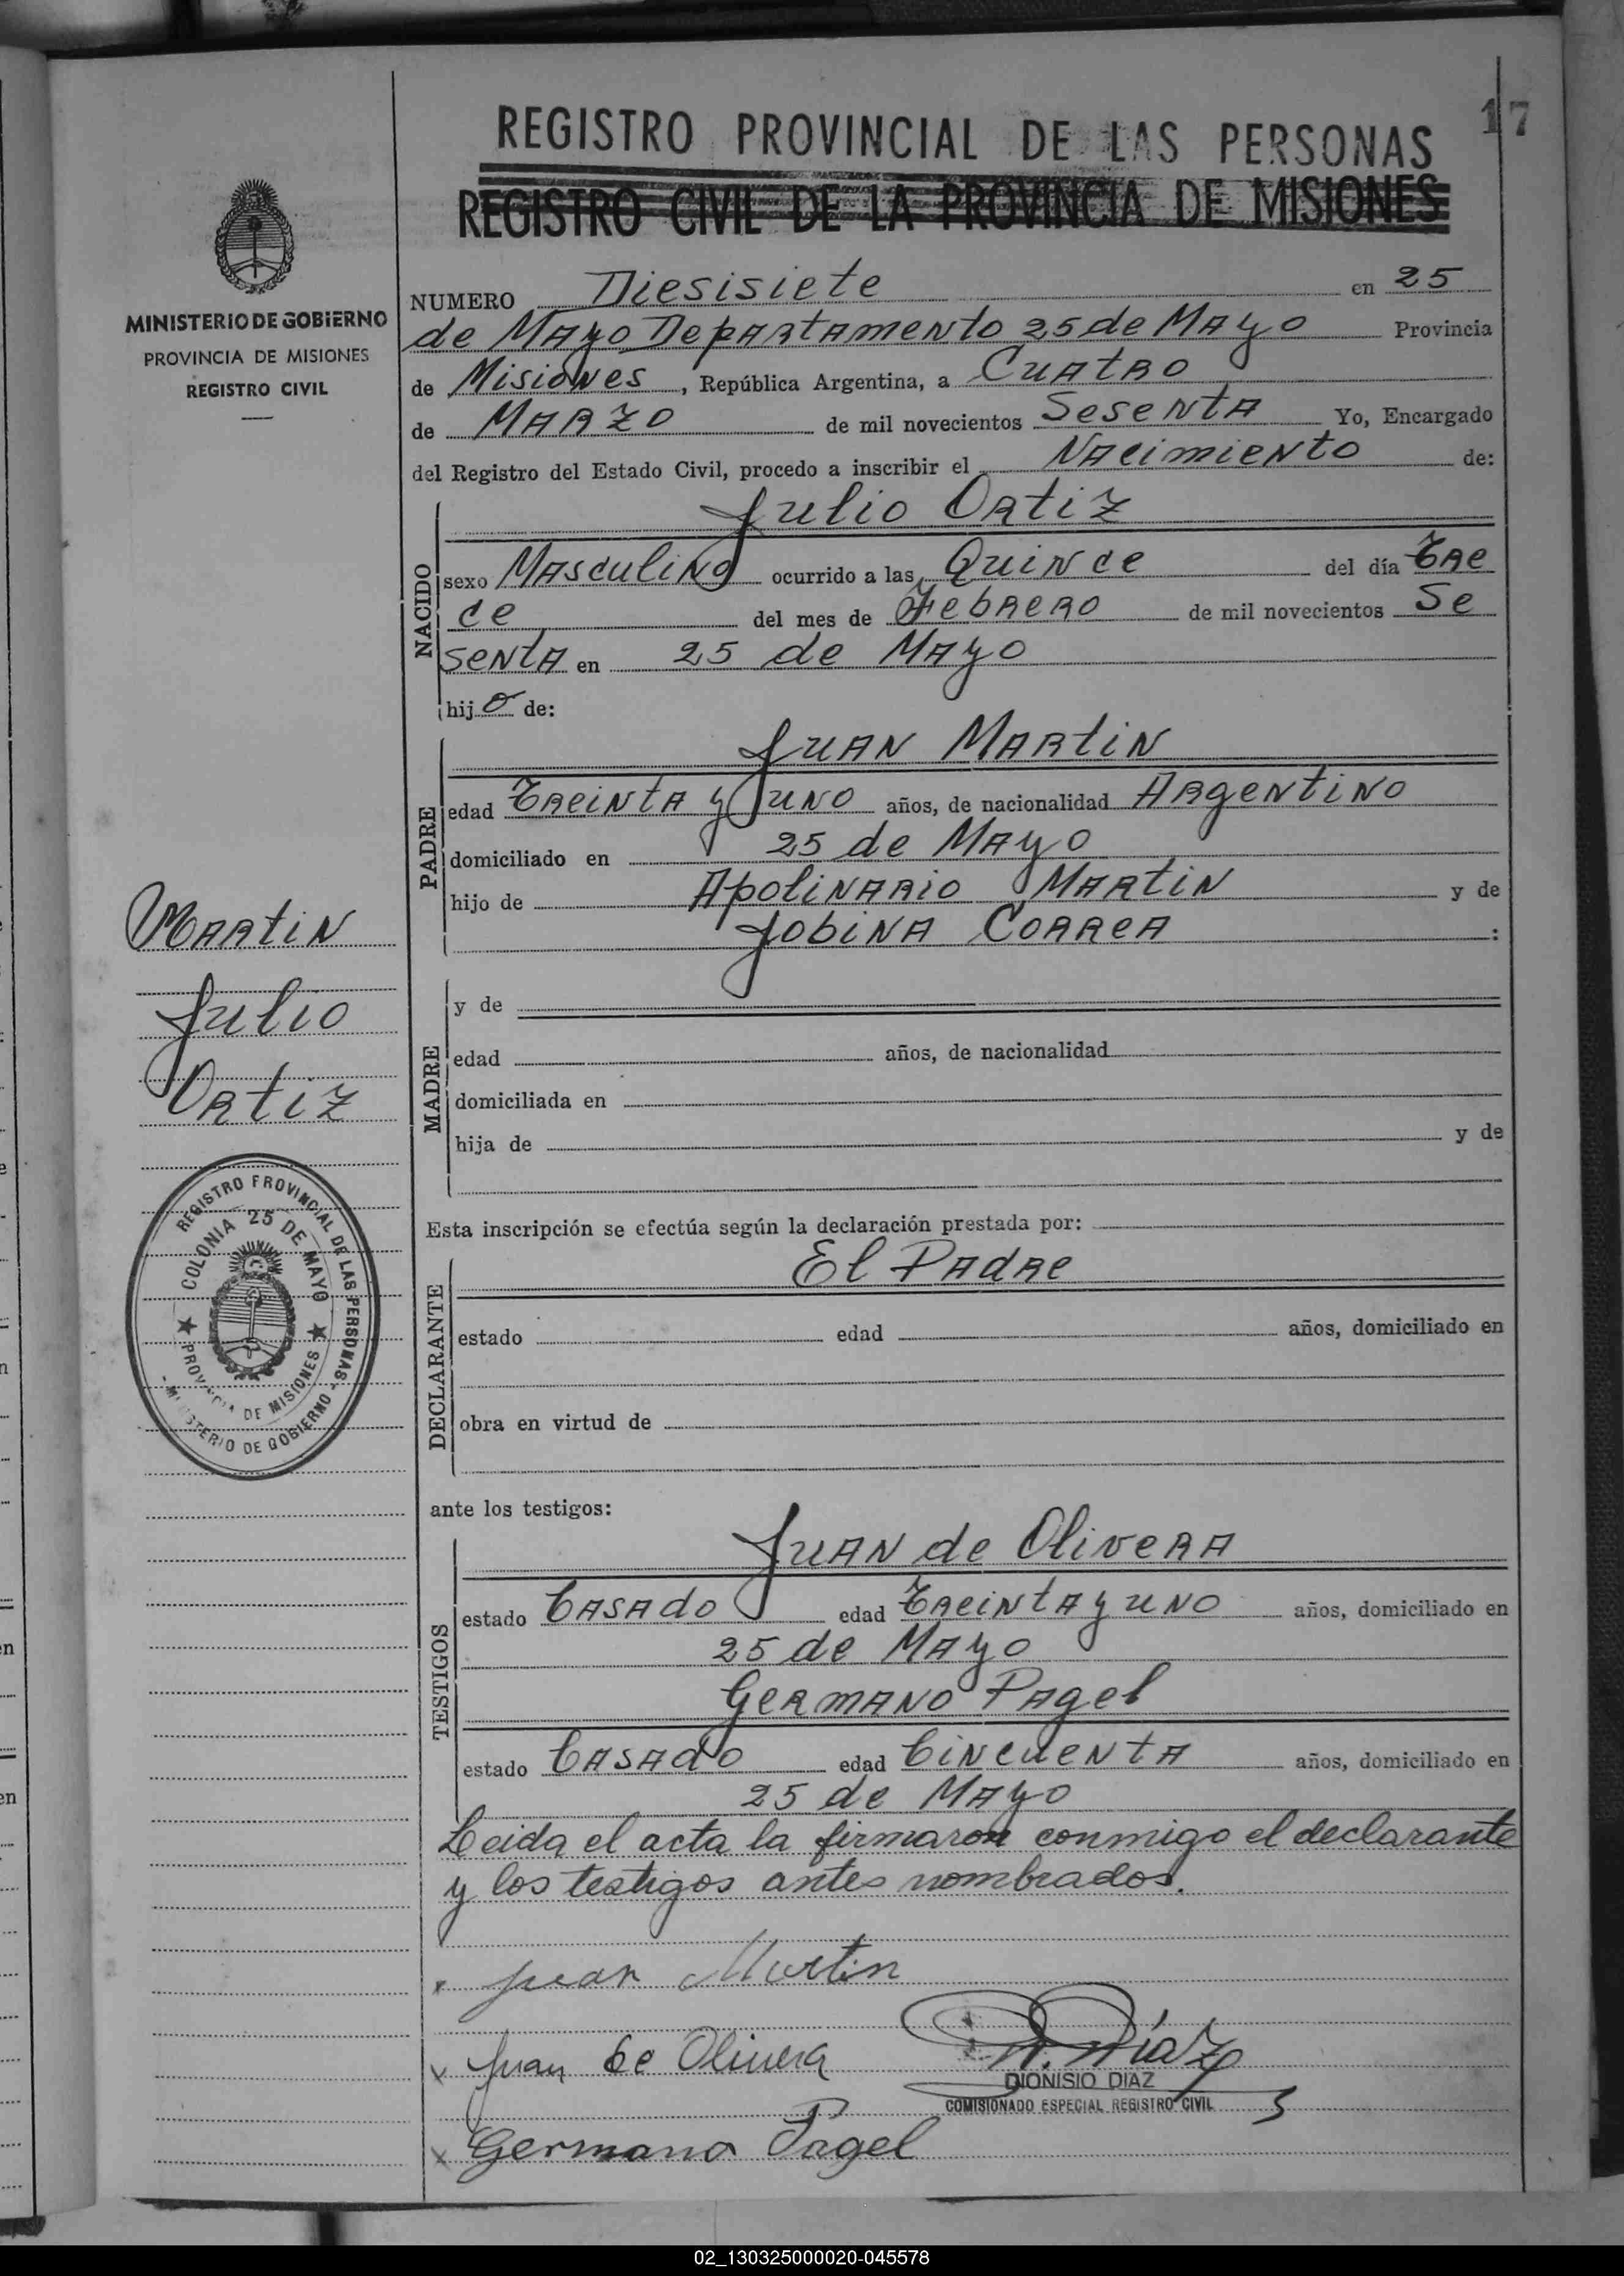 17
REGISTRO PROVINCIAL DE LAS PERSONAS
REGISTRO CIVIL DE LA PROVINCIA DE MISIONES
MINISTERIO DE GOBIERNO
PROVINCIA DE MISIONES
REGISTRO CIVIL
NUMERO Diesisiete en 25
de Mayo Departamento 25 de Mayo Provincia
de Misiones, República Argentina, a Cuatro
de Marzo de mil novecientos Sesenta Yo, Encargado
del Registro del Estado Civil, procedo a inscribir el Nacimiento de:
NACIDO
Julio Ortiz
sexo Masculino ocurrido a las Quince del día Tre
ce del mes de Febrero de mil novecientos Se
senta en 25 de Mayo
hijo de:
PADRE
Juan Martin
edad Treinta y uno años, de nacionalidad Argentino
domiciliado en 25 de Mayo
hijo de Apolinario Martin y de
Jobina Correa :
Martin
Julio
Ortiz
MADRE
y de
edad años, de nacionalidad
domiciliada en
hija de y de
REGISTRO PROVINCIAL DE LAS PERSONAS
COLONIA 25 DE MAYO
PROVINCIA DE MISIONES
- MINISTERIO DE GOBIERNO -
Esta inscripción se efectúa según la declaración prestada por:
DECLARANTE
El Padre
estado edad años, domiciliado en
obra en virtud de
ante los testigos:
TESTIGOS
Juan de Olivera
estado Casado edad Treinta y uno años, domiciliado en
25 de Mayo
Germano Pagel
estado Casado edad Cincuenta años, domiciliado en
25 de Mayo
Leida el acta la firmaron conmigo el declarante
y los testigos antes nombrados.
x Juan Martin
x Juan de Olivera
D. Díaz
DIONISIO DIAZ
COMISIONADO ESPECIAL REGISTRO CIVIL
x Germano Pagel
02_130325000020-045578